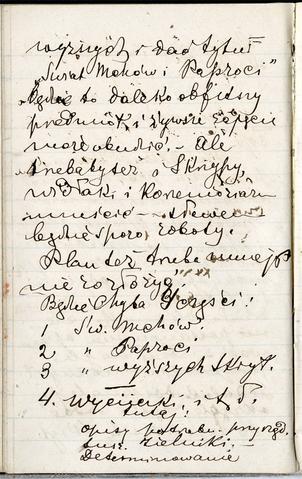 wyższych i dać tytuł
„Świat Mchów i Paproci”
Będzie to daleko obfitszy
przedmiot, i żywsze zajęcie
może obudzić. – Ale
trzeba też i Skrzypy,
widłaki i
umieścić –
będzie sporo roboty.
Plan też trzeba
nie rozłożyć
Będzie chyba części:
1 Św. Mchów.
2 „ Paproci
3 „ wyższych Skryt.
4. Wycieczki i t. d.
tutaj:
opisy potrzeb. przyrząd.
susz. zielniki.
Determinowanie